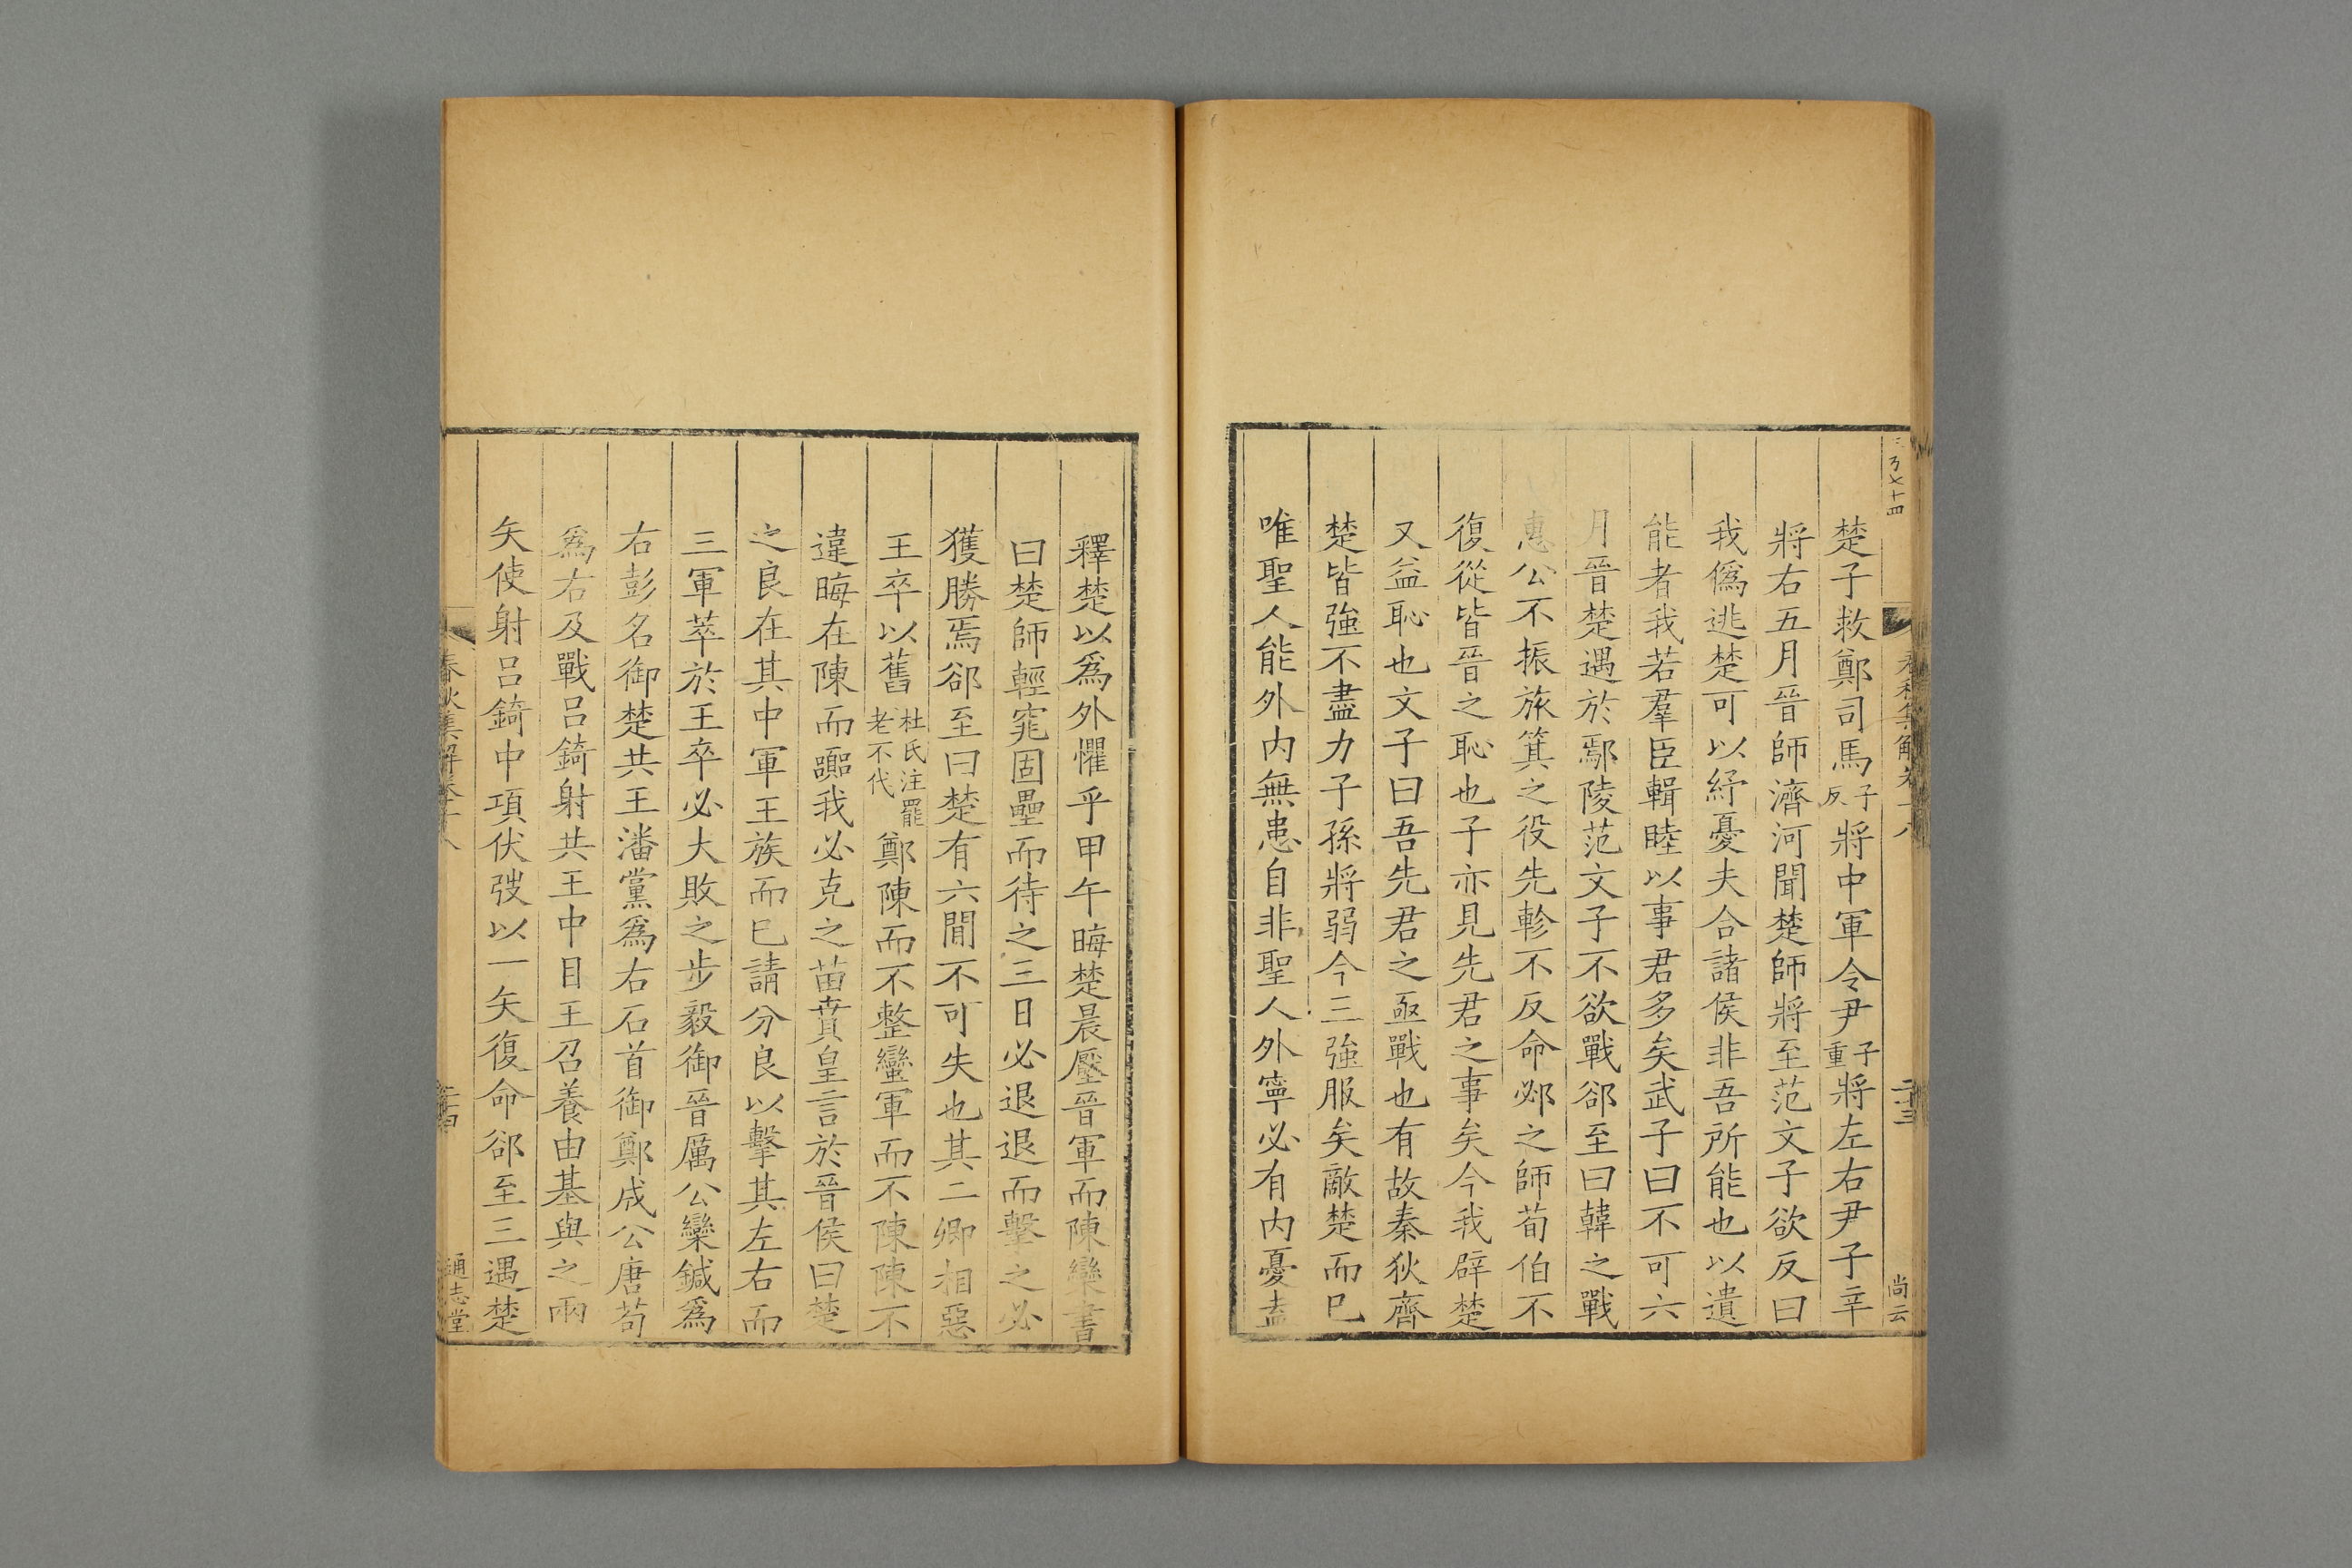 春秋集解卷十八
二十三
尚云
楚子救鄭司馬子反將中軍令尹子重將左右尹子辛
將右五月晉師濟河聞楚師將至范文子欲反曰
我僞逃楚可以紓憂夫合諸侯非吾所能也以遺
能者我若羣臣輯睦以事君多矣武子曰不可六
月晉楚遇於鄢陵范文子不欲戰郤至曰韓之戰
惠公不振旅箕之役先軫不反命邲之師荀伯不
復從皆晉之恥也子亦見先君之事矣今我辟楚
又益恥也文子曰吾先君之亟戰也有故秦狄齊
楚皆強不盡力子孫將弱今三強服矣敵楚而已
唯聖人能外内無患自非聖人外寧必有内憂盍
釋楚以爲外懼乎甲午晦楚晨壓晉軍而陳欒書
曰楚師輕窕固壘而待之三日必退退而擊之必
獲勝焉郤至曰楚有六間不可失也其二卿相惡
王卒以舊杜氏注罷老不代鄭陳而不整蠻軍而不陳陳不
違晦在陳而嚻我必克之苗賁皇言於晉侯曰楚
之良在其中軍王族而已請分良以擊其左右而
三軍萃於王卒必大敗之步毅御晉厲公欒鍼爲
右彭名御楚共王潘黨爲右石首御鄭成公唐苟
爲右及戰呂錡射共王中目王召養由基與之兩
矢使射呂錡中項伏弢以一矢復命郤至三遇楚
春秋集解卷十八
二十四
通志堂